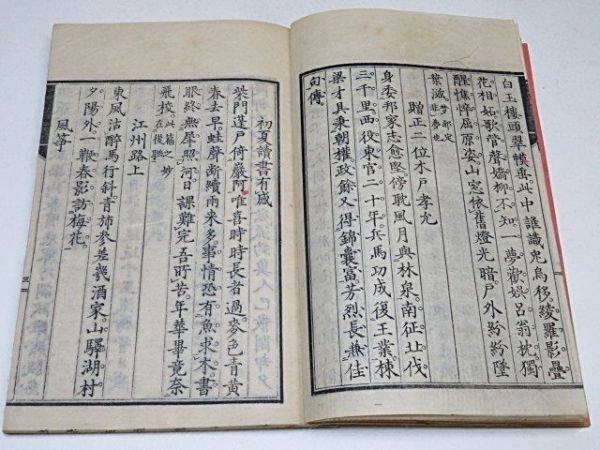 白玉樓頭翠幙垂。此中誰識兎烏移。綾羅影疊
花相妬。歌管聲嬌柳不知。一夢歡娯呂翁枕。獨
醒憔悴屈原姿。山窓依舊燈光暗。戸外紛紛墜
葉滋。
贈正二位木戸孝允
身委邦家志愈堅。傍耽風月與林泉。南征北伐
三千里。西役東官二十年。兵馬功成復王業。棟
梁才具秉朝權。政餘又得錦囊富。芳烈長兼佳
句傳
初夏讀書有感
柴門蓬戸倚巖阿。唯喜時時長者過。麥色青黄
春去早。蛙聲斷續雨来多。事情恐有魚求木。書
眼終無犀照河。日課難完吾所苦。年華畢竟奈
飛梭。此篇之妙在後聯
江州路上
東風沽醉馬行斜。青旆參差幾酒家。山驛湖村
夕陽外。一鞭春影訪梅花。
風箏